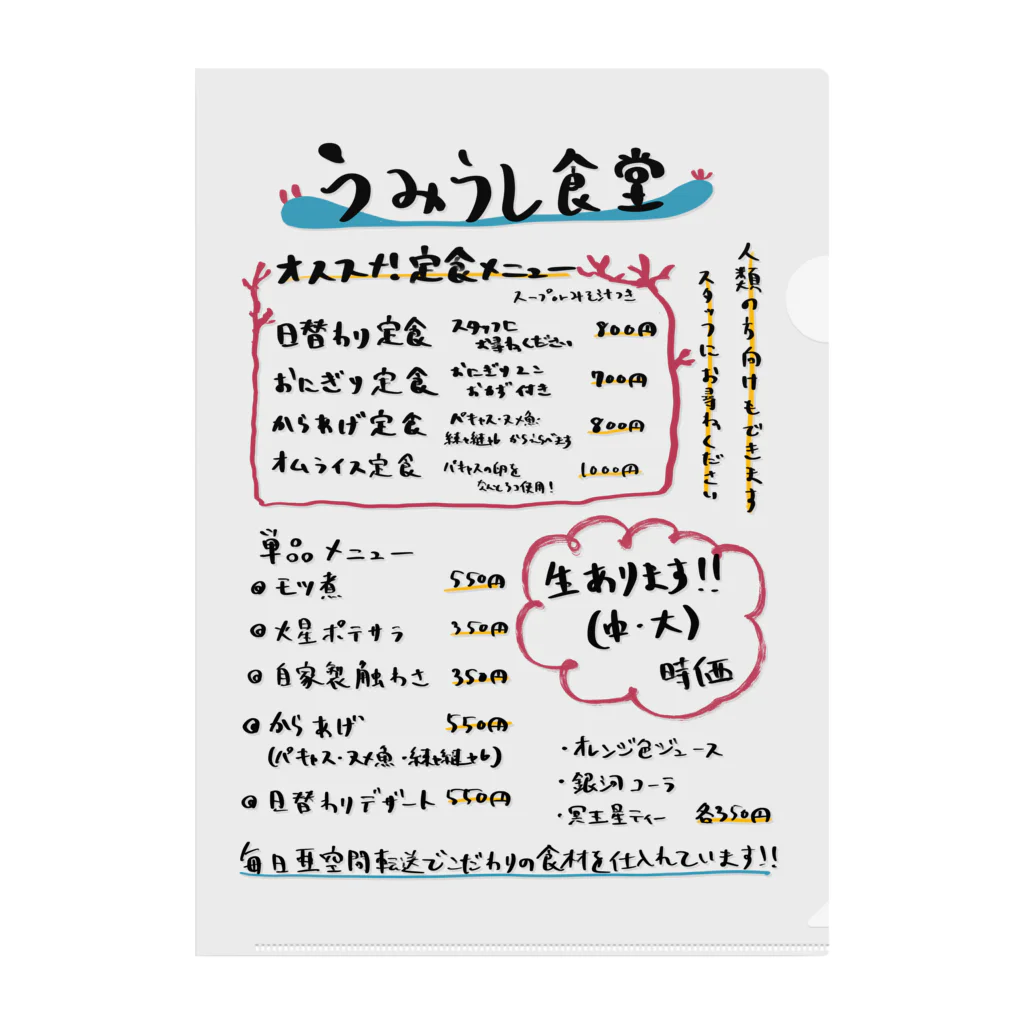 うみうし食堂
オススメ!定食メニュー
スープorみそ汁つき
日替わり定食 スタッフに 800円
お尋ねください
おにぎり定食 おにぎり2コ 700円
おかず付き
からあげ定食 パキャス・ヌメ魚・ 800円
からえらべます
オムライス定食 パキャスの卵を 1000円
なんと3コ使用!
人類の方向けもできます
スタッフにお尋ねください
単品メニュー
モツ煮 550円
火星ポテサラ 350円
自家製触わさ 350円
からあげ 550円
(パキャス・ヌメ魚・
日替わりデザート 550円
生あります!!
(中・大)
時価
・オレンジ色ジュース
・銀河コーラ
・冥王星ティー 各350円
毎日亜空間転送でこだわりの食材を仕入れています!!